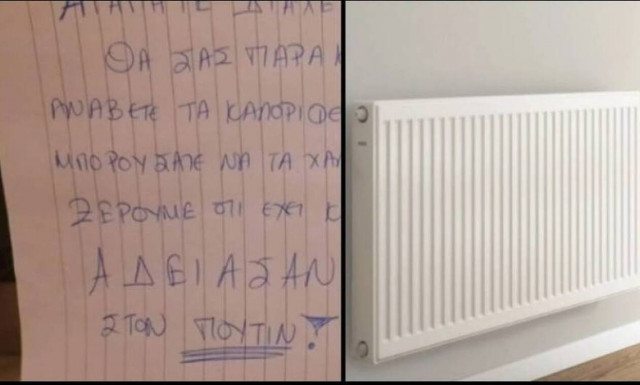 ΑΓΑΠΗΤΕ ΔΙΑΧΕ
ΘΑ ΣΑΣ ΠΑΡΑΚ
ΑΝΑΒΕΤΕ ΤΑ ΚΑΛΟΡΙΦΕ
ΜΠΟΡΟΥΣΑΤΕ ΝΑ ΤΑ ΧΑ
ΞΕΡΟΥΜΕ ΟΤΙ ΕΧΕΙ Κ
ΑΔΕΙΑΣΑΝ
ΣΤΟΝ ΠΟΥΤΙΝ!